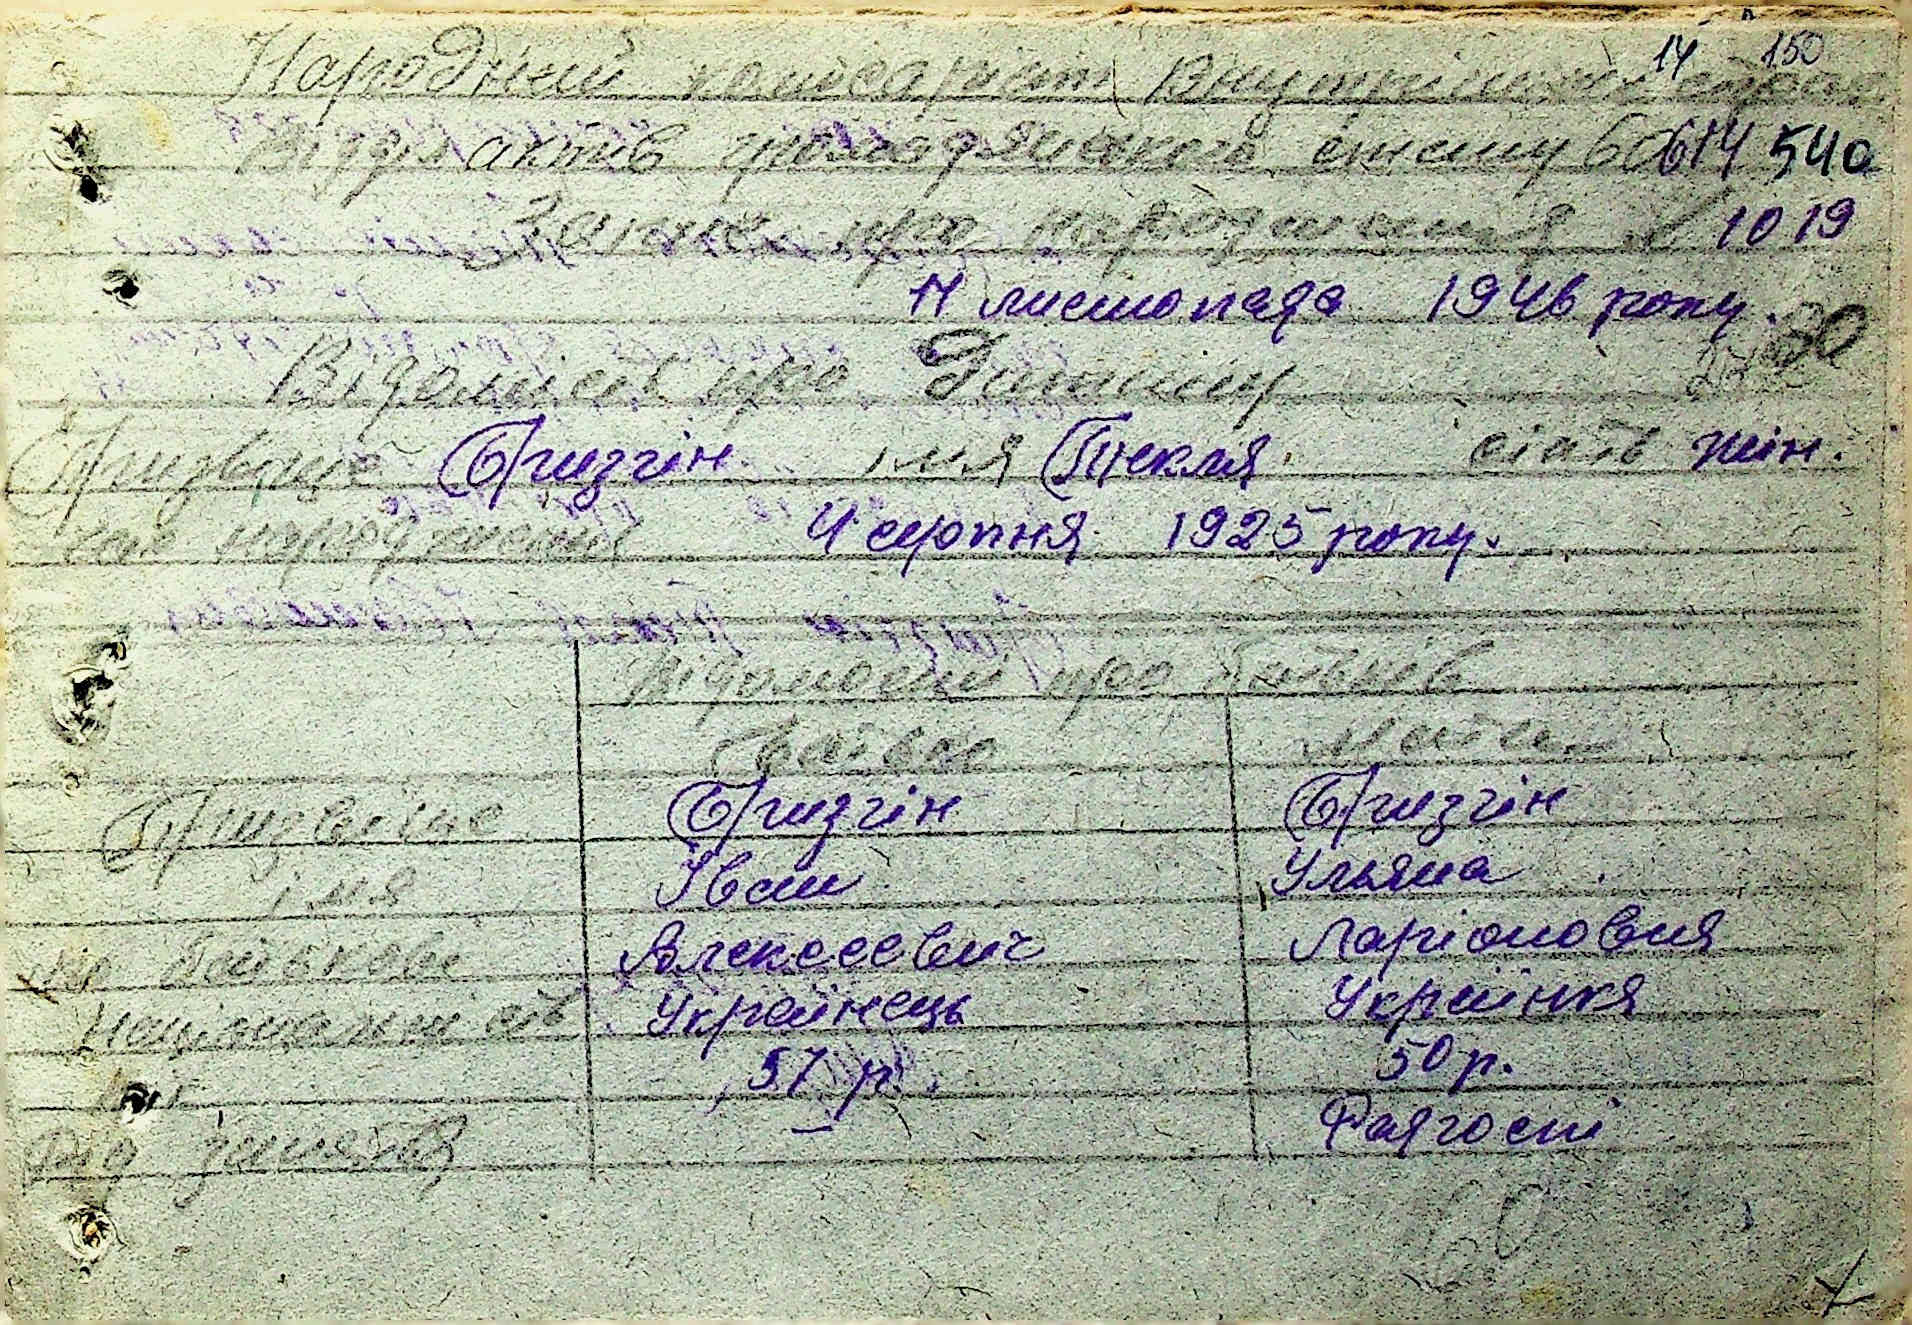 14 150
Народний комісаріат внутрішніх справ
Відділ актів громадянського стану 614 540
Запис про народження № 1019
11 листопада 1946 року.
Відомість про дитину 80
Призвіще Бризгін імя Текля стать жін.
час народження 4 серпня 1925 року.
Відомості про батьків
батько мати
Призвіще Бризгін Бризгін
імя Іван Ульяна
по батькові Алексеевич Ларіоновня
Національність Українець Українка
57 р. 50 р.
рід заняття —
60